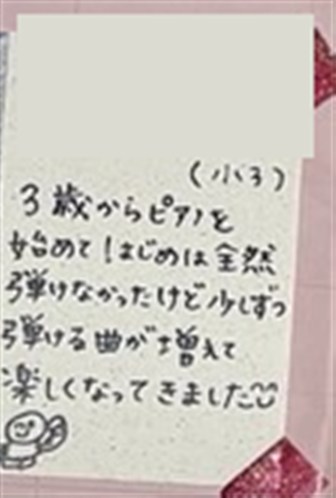 (小3)
3歳からピアノを
始めて!はじめは全然
弾けなかったけど少しずつ
弾ける曲が増えて
楽しくなってきました